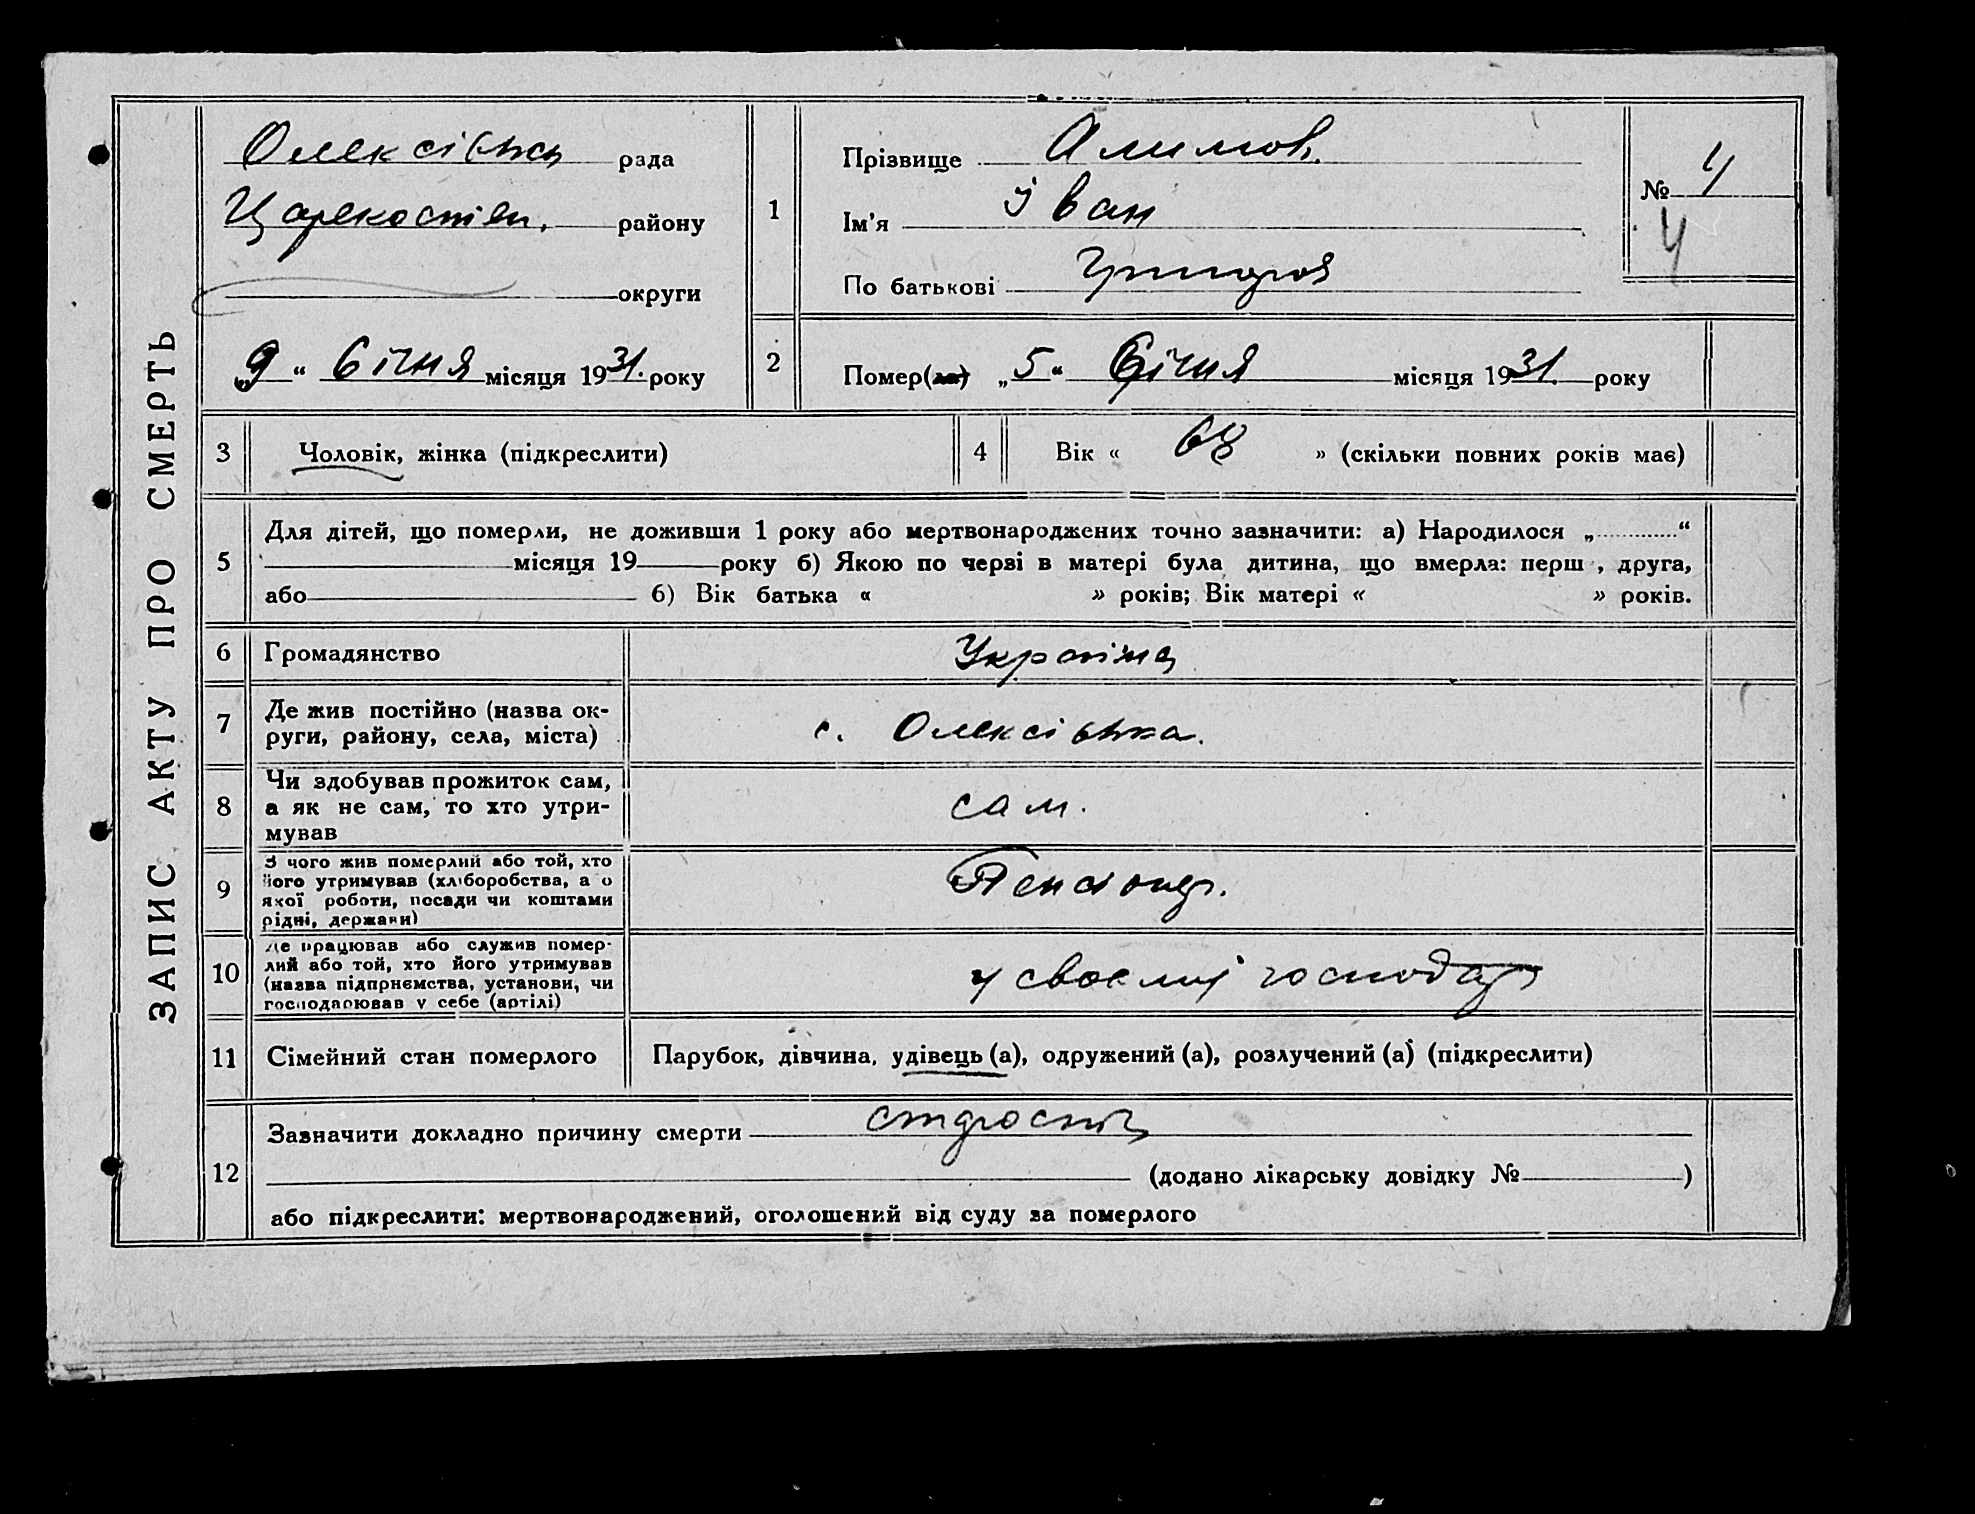 ЗАПИС АКТУ ПРО СМЕРТЬ
Олексівська рада
району
округи
„9“ Січня місяця 1931. року
1
Прізвище Алимов.
Ім'я Іван
По батькові
№ 4
4
2
Помер(ла) „5“ Січня місяця 1931. року
3 Чоловік, жінка (підкреслити)
4 Вік « 68 » (скільки повних років має)
5
Для дітей, що померли, не доживши 1 року або мертвонароджених точно зазначити: а) Народилося „ “
місяця 19 року б) Якою по черзі в матері була дитина, що вмерла: перш , друга,
або 6) Вік батька « » років; Вік матері « » років.
6 Громадянство Україна
7
Де жив постійно (назва ок-
руги, району, села, міста)
с. Олексівка.
8
Чи здобував прожиток сам,
а як не сам, то хто утри-
мував
сам.
9
З чого жив померлий або той, хто
його утримував (хліборобства, а о
якої роботи, посади чи коштами
рідні, держави)
10
Де працював або служив помер-
лий або той, хто його утримував
(назва підприємства, установи, чи
господарював у себе (артілі)
у своєму господар
11 Сімейний стан померлого Парубок, дівчина, удівець (а), одружений (а), розлучений (а) (підкреслити)
12
Зазначити докладно причину смерти старость
(додано лікарську довідку № )
або підкреслити: мертвонароджений, оголошений від суду за померлого